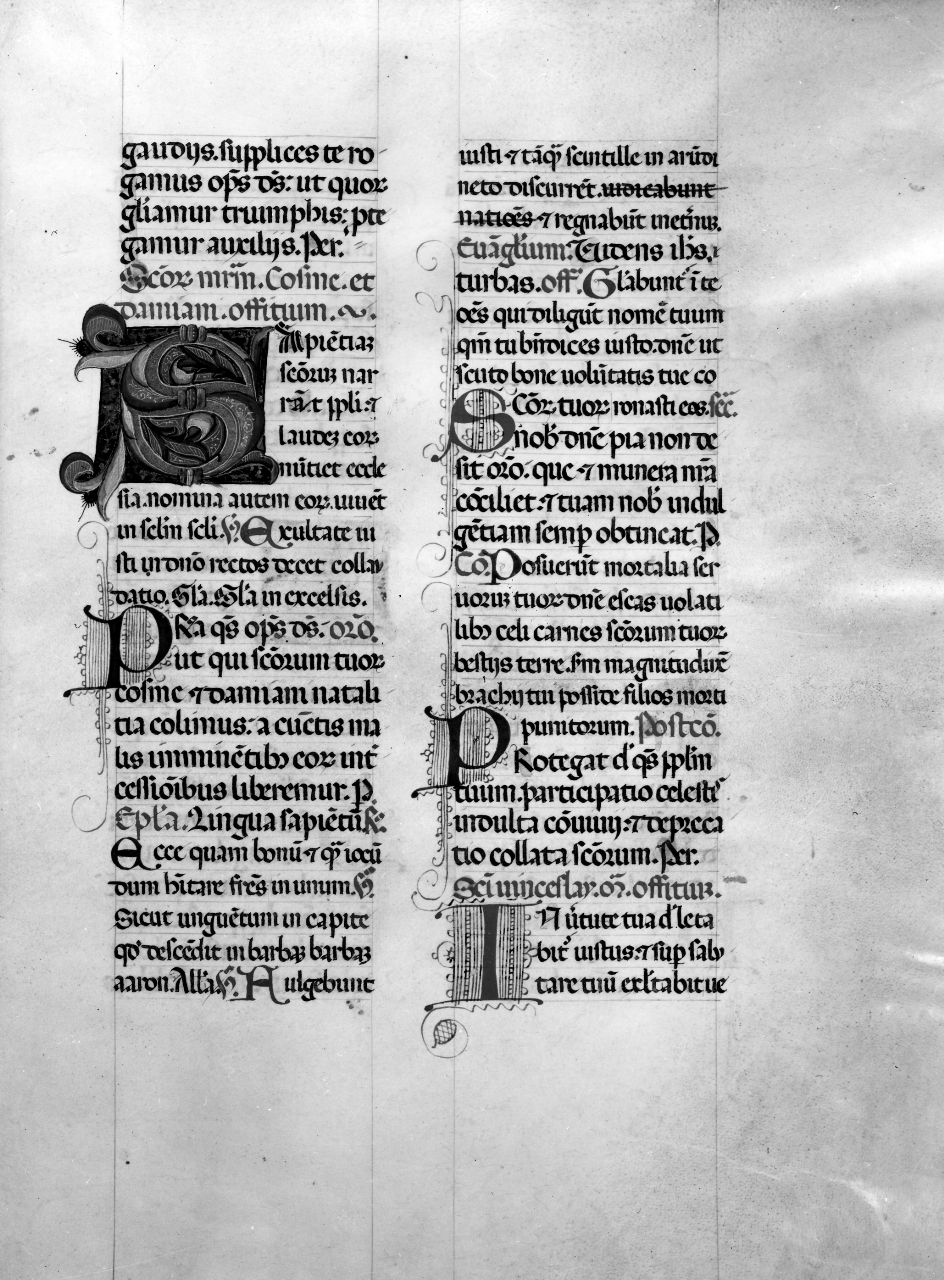 gaudijs. supplices te ro
gamus op̄s d̄s: ut quor
gl̄iamur triumphis: pte
gamur auxilijs. Per.
Sc̄or mr̄m. Cosme. et
damiam. offitium.
Sapiēciaꝫ
sc̄oruꝫ nar
rā̄t ppl̄i: ⁊
laudeꝫ eoꝝ
nūtiet eccle
sia. nomina autem eoꝝ. uiuēt
in scl̄m scl̄i. ℣. Exultate iu
sti in dn̄o rectos decet collau
datio. Gl̄a. Gl̄a in excelsis.
PRa q̄s op̄s d̄s. or̄o.
ut qui sc̄orum tuoꝝ
cosme ⁊ damiam natali
tia colimus: a cūctis ma
lis imminētibꝫ eoꝝ int̄
cessiōibus liberemur. P.
Epl̄a. Lingua sapiētū. R̄.
Ecce quam bonū ⁊ q̄ iocū
dum hītare fr̄es in unum. ℣.
Sicut unguētum in capite
qd̓ descēdit in barbaꝫ barbaꝫ
aaron. All̄a ℣. Fulgebunt
iusti ⁊ tāq̄ scintille in arūdi
neto discurrēt. iudicabunt
natiōes ⁊ regnabūt inet̄nuꝫ.
Euāgl̄ium. Uidens ih̄s.
turbas. off̄. Gl̄abunt̄ ī te
oēs qui diligūt nomē tuum
qm̄ tu bn̄dices iusto: dn̄e ut
scuto bone uolūtatis tue co
ronasti eos. sec̄.
Sc̄oꝝ tuoꝝ
nob̄ dn̄e pia non de
sit or̄o. que ⁊ munera nr̄a
cōciliet: ⁊ tuam nob̄ indul
gētiam semp̱ obtineat. P.
Cō. Posuerūt mortalia ser
uoruꝫ tuoꝝ dn̄e escas uolati
libꝫ celi carnes sc̄orum tuoꝝ
bestijs terre. sm̄ magnitudinē
brachij tui posside filios morti
punitorum. Postcō.
PRotegat d̓ q̄s pplm̄
tuum. participatio celestꝭ
indulta cōuiuij: ⁊ depreca
tio collata sc̄orum. Per.
Sc̄i uinceslay. m̄. offitiuꝫ.
IN ūtute tua d̄ leta
bit̄ iustus: ⁊ sup̱ salu
tare tuū exl̄tabit ue